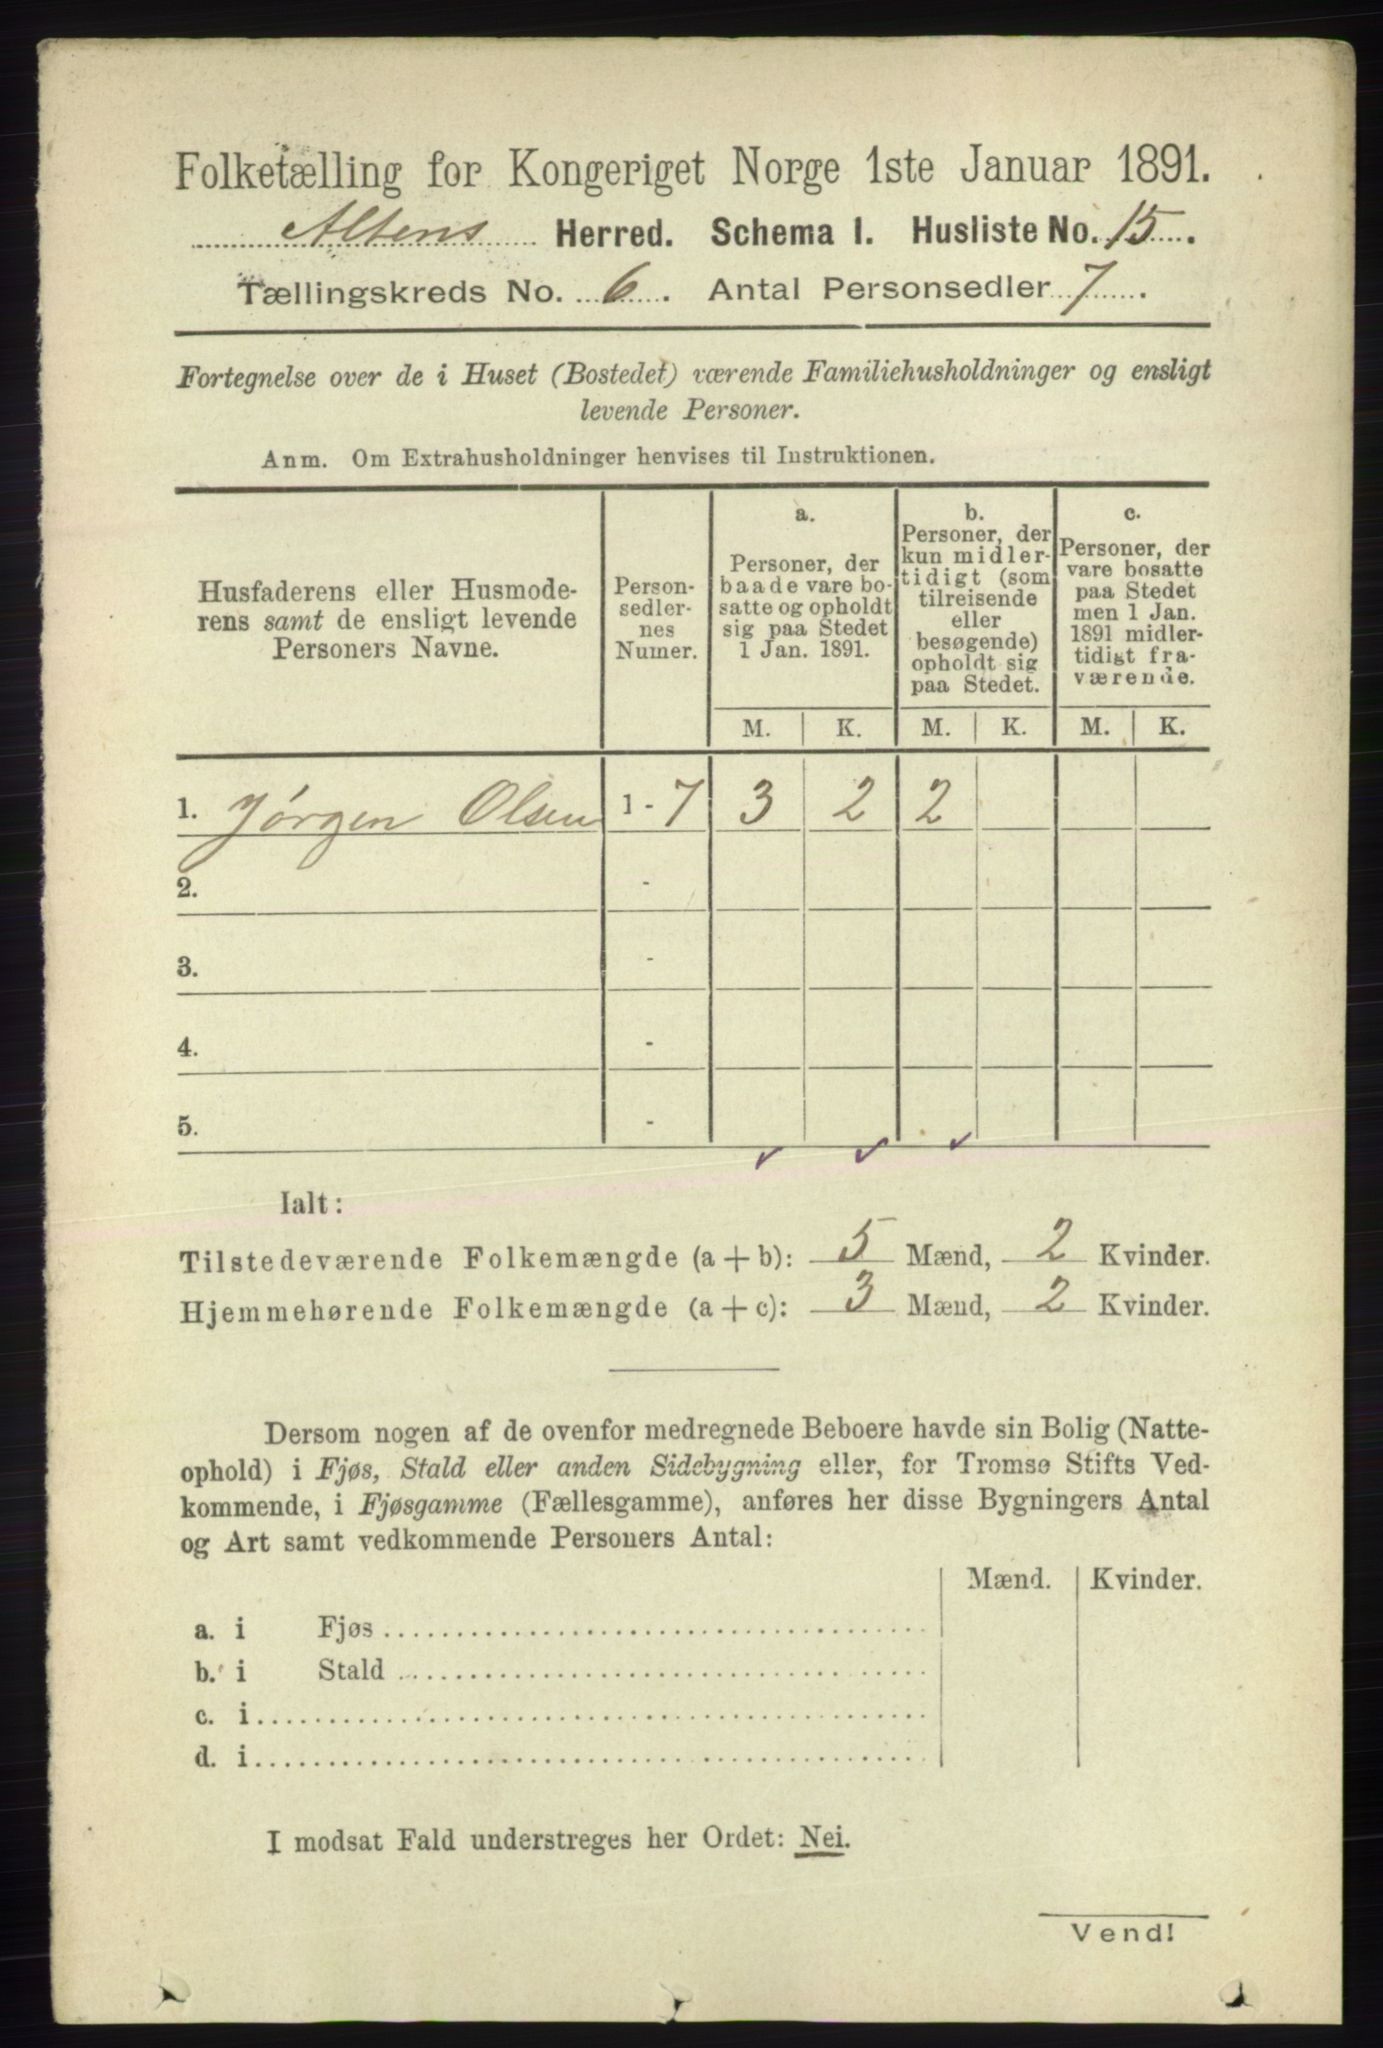 Folketælling for Kongeriget Norge 1ste Januar 1891.
Altens Herred. Schema I. Husliste No. 15.
Tællingskreds No. 6. Antal Personsedler 7.
Fortegnelse over de i Huset (Bostedet) værende Familiehusholdninger og ensligt
levende Personer.
Anm. Om Extrahusholdninger henvises til Instruktionen.
Husfaderens eller Husmode-
rens samt de ensligt levende
Personers Navne.
Person-
sedler-
nes
Numer.
a.
Personer, der
baade vare bo-
satte og opholdt
sig paa Stedet
1 Jan. 1891.
b.
Personer, der
kun midler-
tidigt (som
tilreisende
eller
besøgende)
opholdt sig
paa Stedet.
c.
Personer, der
vare bosatte
paa Stedet
men 1 Jan.
1891 midler-
tidigt fra-
værende.
M. K. M. K. M. K.
1. Jørgen Olsen 1 - 7 3 2 2
2. -
3. -
4. -
5. -
Ialt:
Tilstedeværende Folkemængde (a + b): 5 Mænd, 2 Kvinder.
Hjemmehørende Folkemængde (a + c): 3 Mænd, 2 Kvinder.
Dersom nogen af de ovenfor medregnede Beboere havde sin Bolig (Natte-
ophold) i Fjøs, Stald eller anden Sidebygning eller, for Tromsø Stifts Ved-
kommende, i Fjøsgamme (Fællesgamme), anføres her disse Bygningers Antal
og Art samt vedkommende Personers Antal:
Mænd. Kvinder.
a. i Fjøs
b. i Stald
c. i
d. i
I modsat Fald understreges her Ordet: Nei.
Vend!